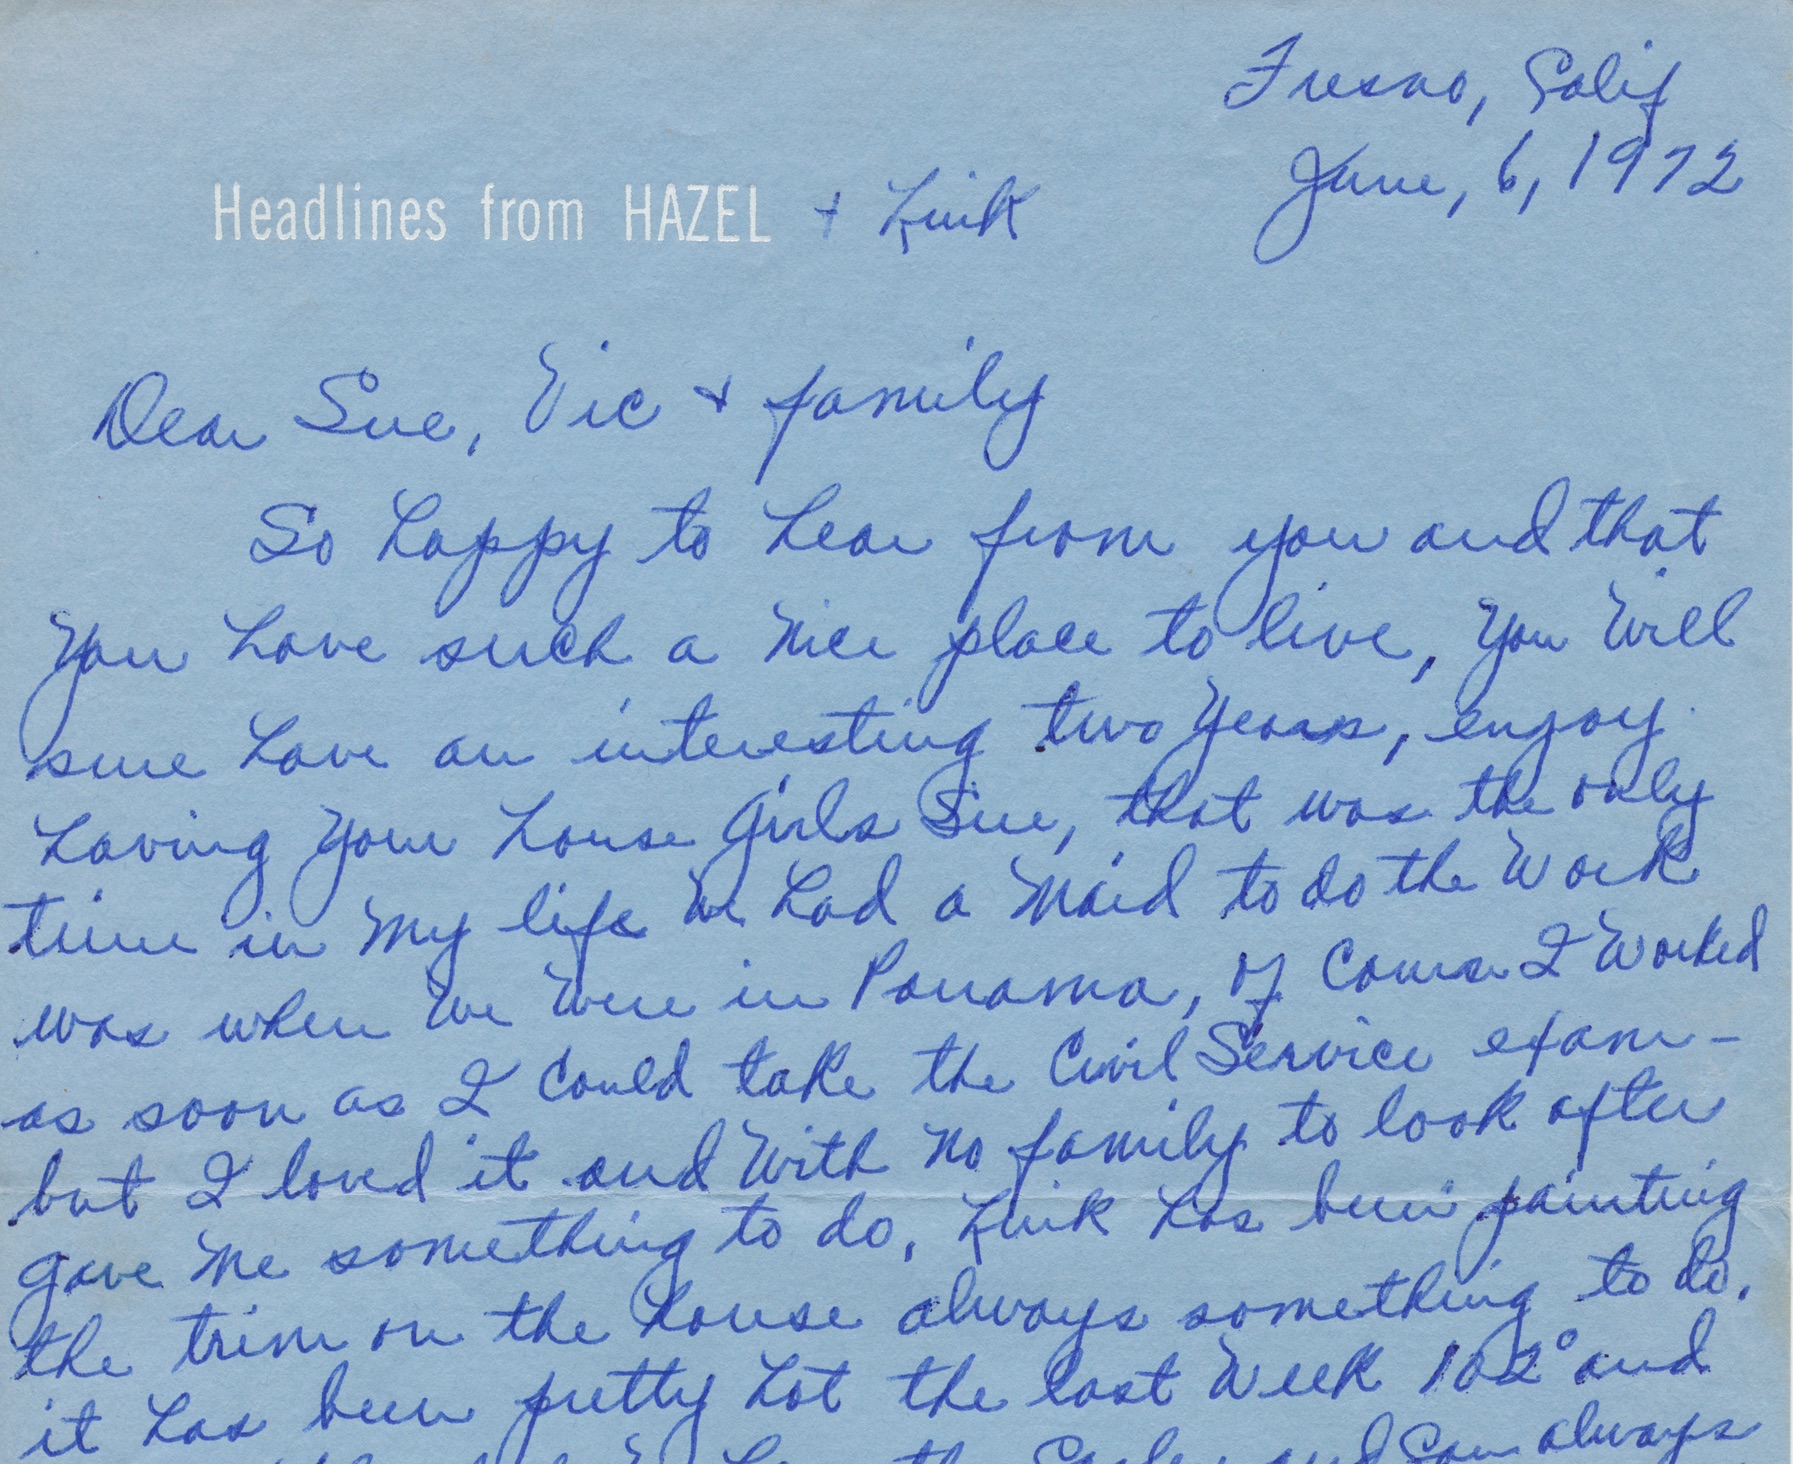 Fresno, Calif
June, 6, 1972
Headlines from HAZEL + Link
Dear Sue, Vic + family
So happy to hear from you and that
you have such a nice place to live, you will
sure have an interesting two years, enjoy
having your house girls Sue, that was the only
time in my life we had a maid to do the work
was when we were in Panama, of course I worked
as soon as I could take the Civil Service exam-
but I loved it and with no family to look after
gave me something to do, Link has been painting
the trim on the house always something to do.
it has been pretty hot the last week 102° and
and always